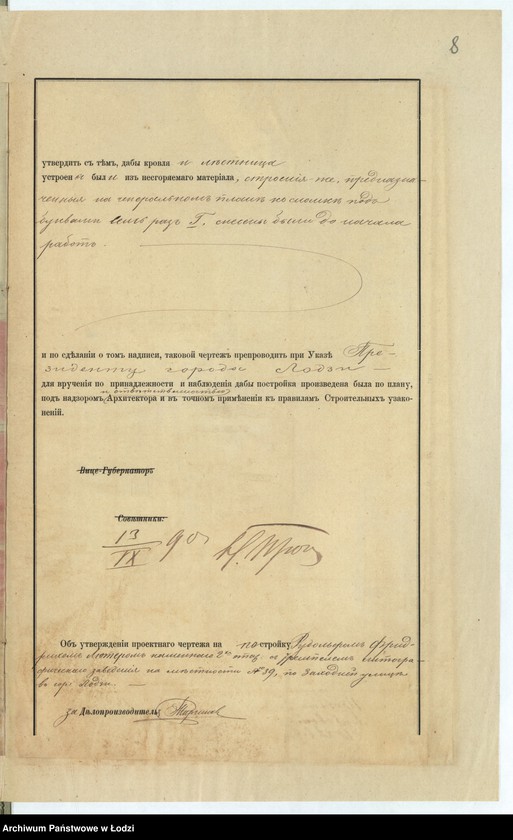 8
утвердить съ тѣмъ, дабы кровля и лѣстница
устроены были изъ несгораемаго матеріала, строенія же, предназна-
ченныя на генеральномъ планѣ къ сломкѣ подъ
буквами семь разъ Г. снесены были до начала
работъ.
и по сдѣланіи о томъ надписи, таковой чертежъ препроводить при Указѣ Пре-
зиденту города Лодзи
для врученія по принадлежности и наблюденія дабы постройка произведена была по плану,
и отвѣтственностью
подъ надзоромъ Архитектора и въ точномъ примѣненіи къ правиламъ Строительныхъ узако-
неній.
Вице-Губернаторъ
Совѣтники:
13/IX 90
Объ утвержденіи проектнаго чертежа на постройку Рудольфомъ Фрид-
рихомъ каменныхъ 2хъ этаж. и
заведенія на мѣстности № 39, по Заходней улицѣ
въ гор. Лодзи.
за Дѣлопроизводитель:
Archiwum Państwowe w Łodzi